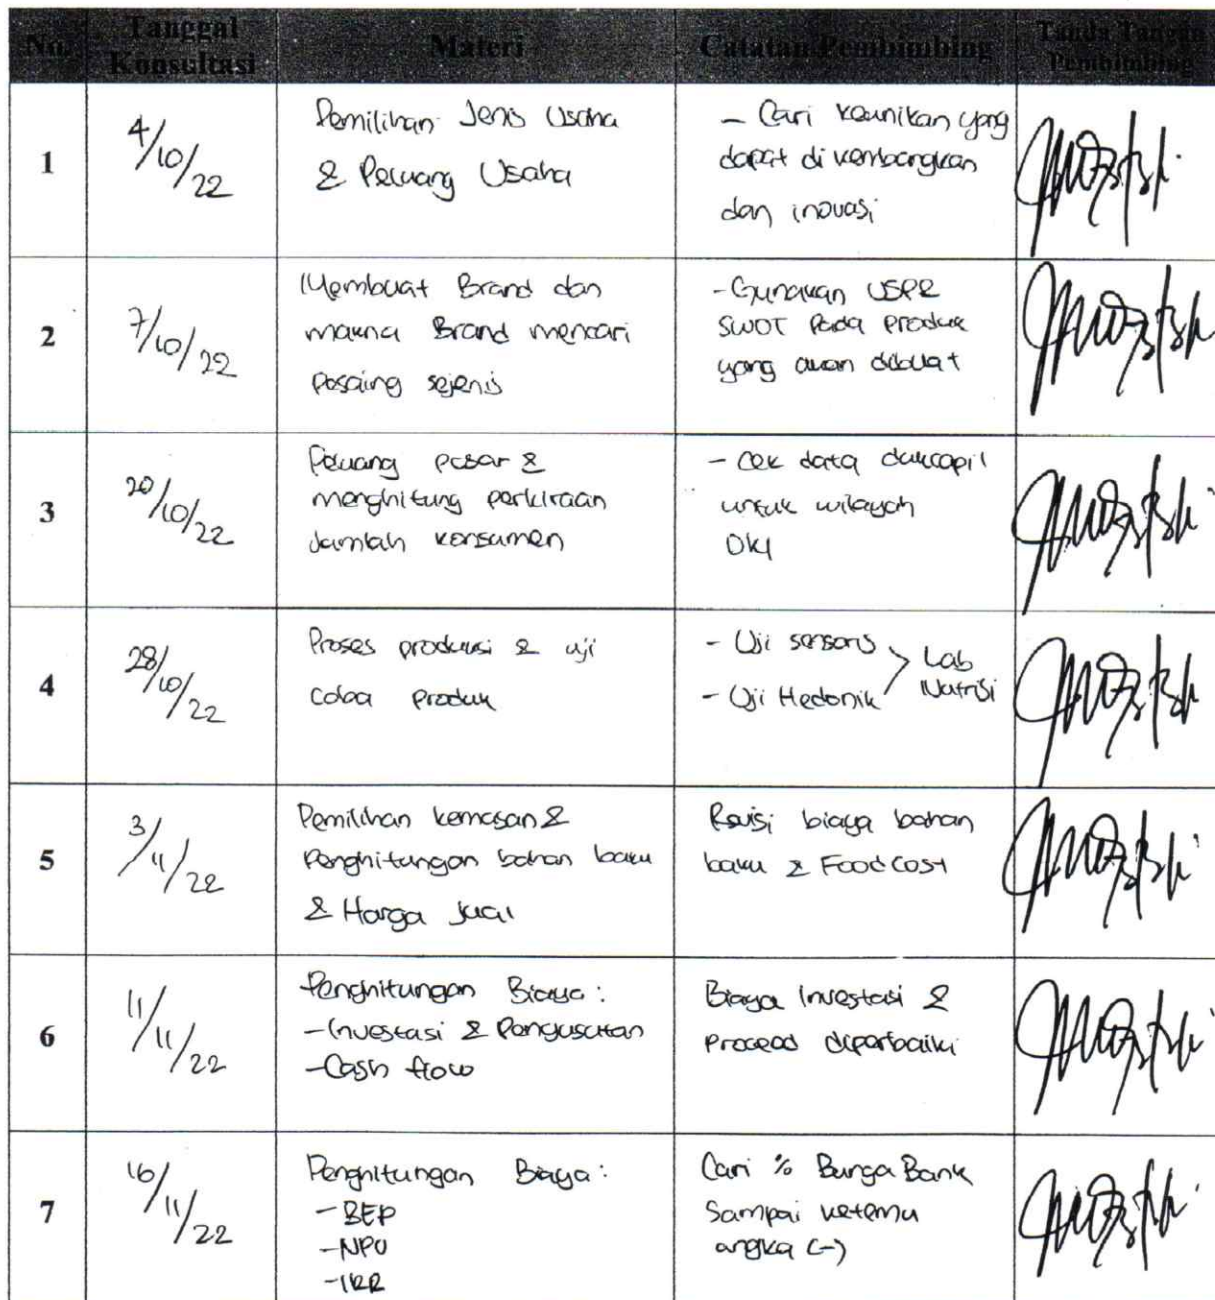 No. Tanggal Konsultasi Materi Catatan Pembimbing Tanda Tangan Pembimbing
1
4/10/22
Pemilihan Jenis Usaha
& Peluang Usaha
- Cari keunikan yang
dapat di kembangkan
dan inovasi
2
7/10/22
Membuat Brand dan
makna Brand mencari
pesaing sejenis
- Gunakan USP &
SWOT Pada produk
yang akan dibuat
3
20/10/22
Peluang pasar &
menghitung perkiraan
Jumlah konsumen
- Cek data dukcapil
untuk wilayah
DKI
4
28/10/22
Proses produksi & uji
coba produk
- Uji sensoris
- Uji Hedonik
Lab
Nutrisi
5
3/11/22
Pemilihan kemasan &
Penghitungan bahan baku
& Harga Jual
Revisi biaya bahan
baku & Food Cost
6
11/11/22
Penghitungan Biaya :
- Investasi & Pengusutan
- Cash flow
Biaya Investasi &
Proceed diperbaiki
7
16/11/22
Penghitungan Biaya :
- BEP
- NPV
- IRR
Cari % Bunga Bank
Sampai ketemu
angka (-)